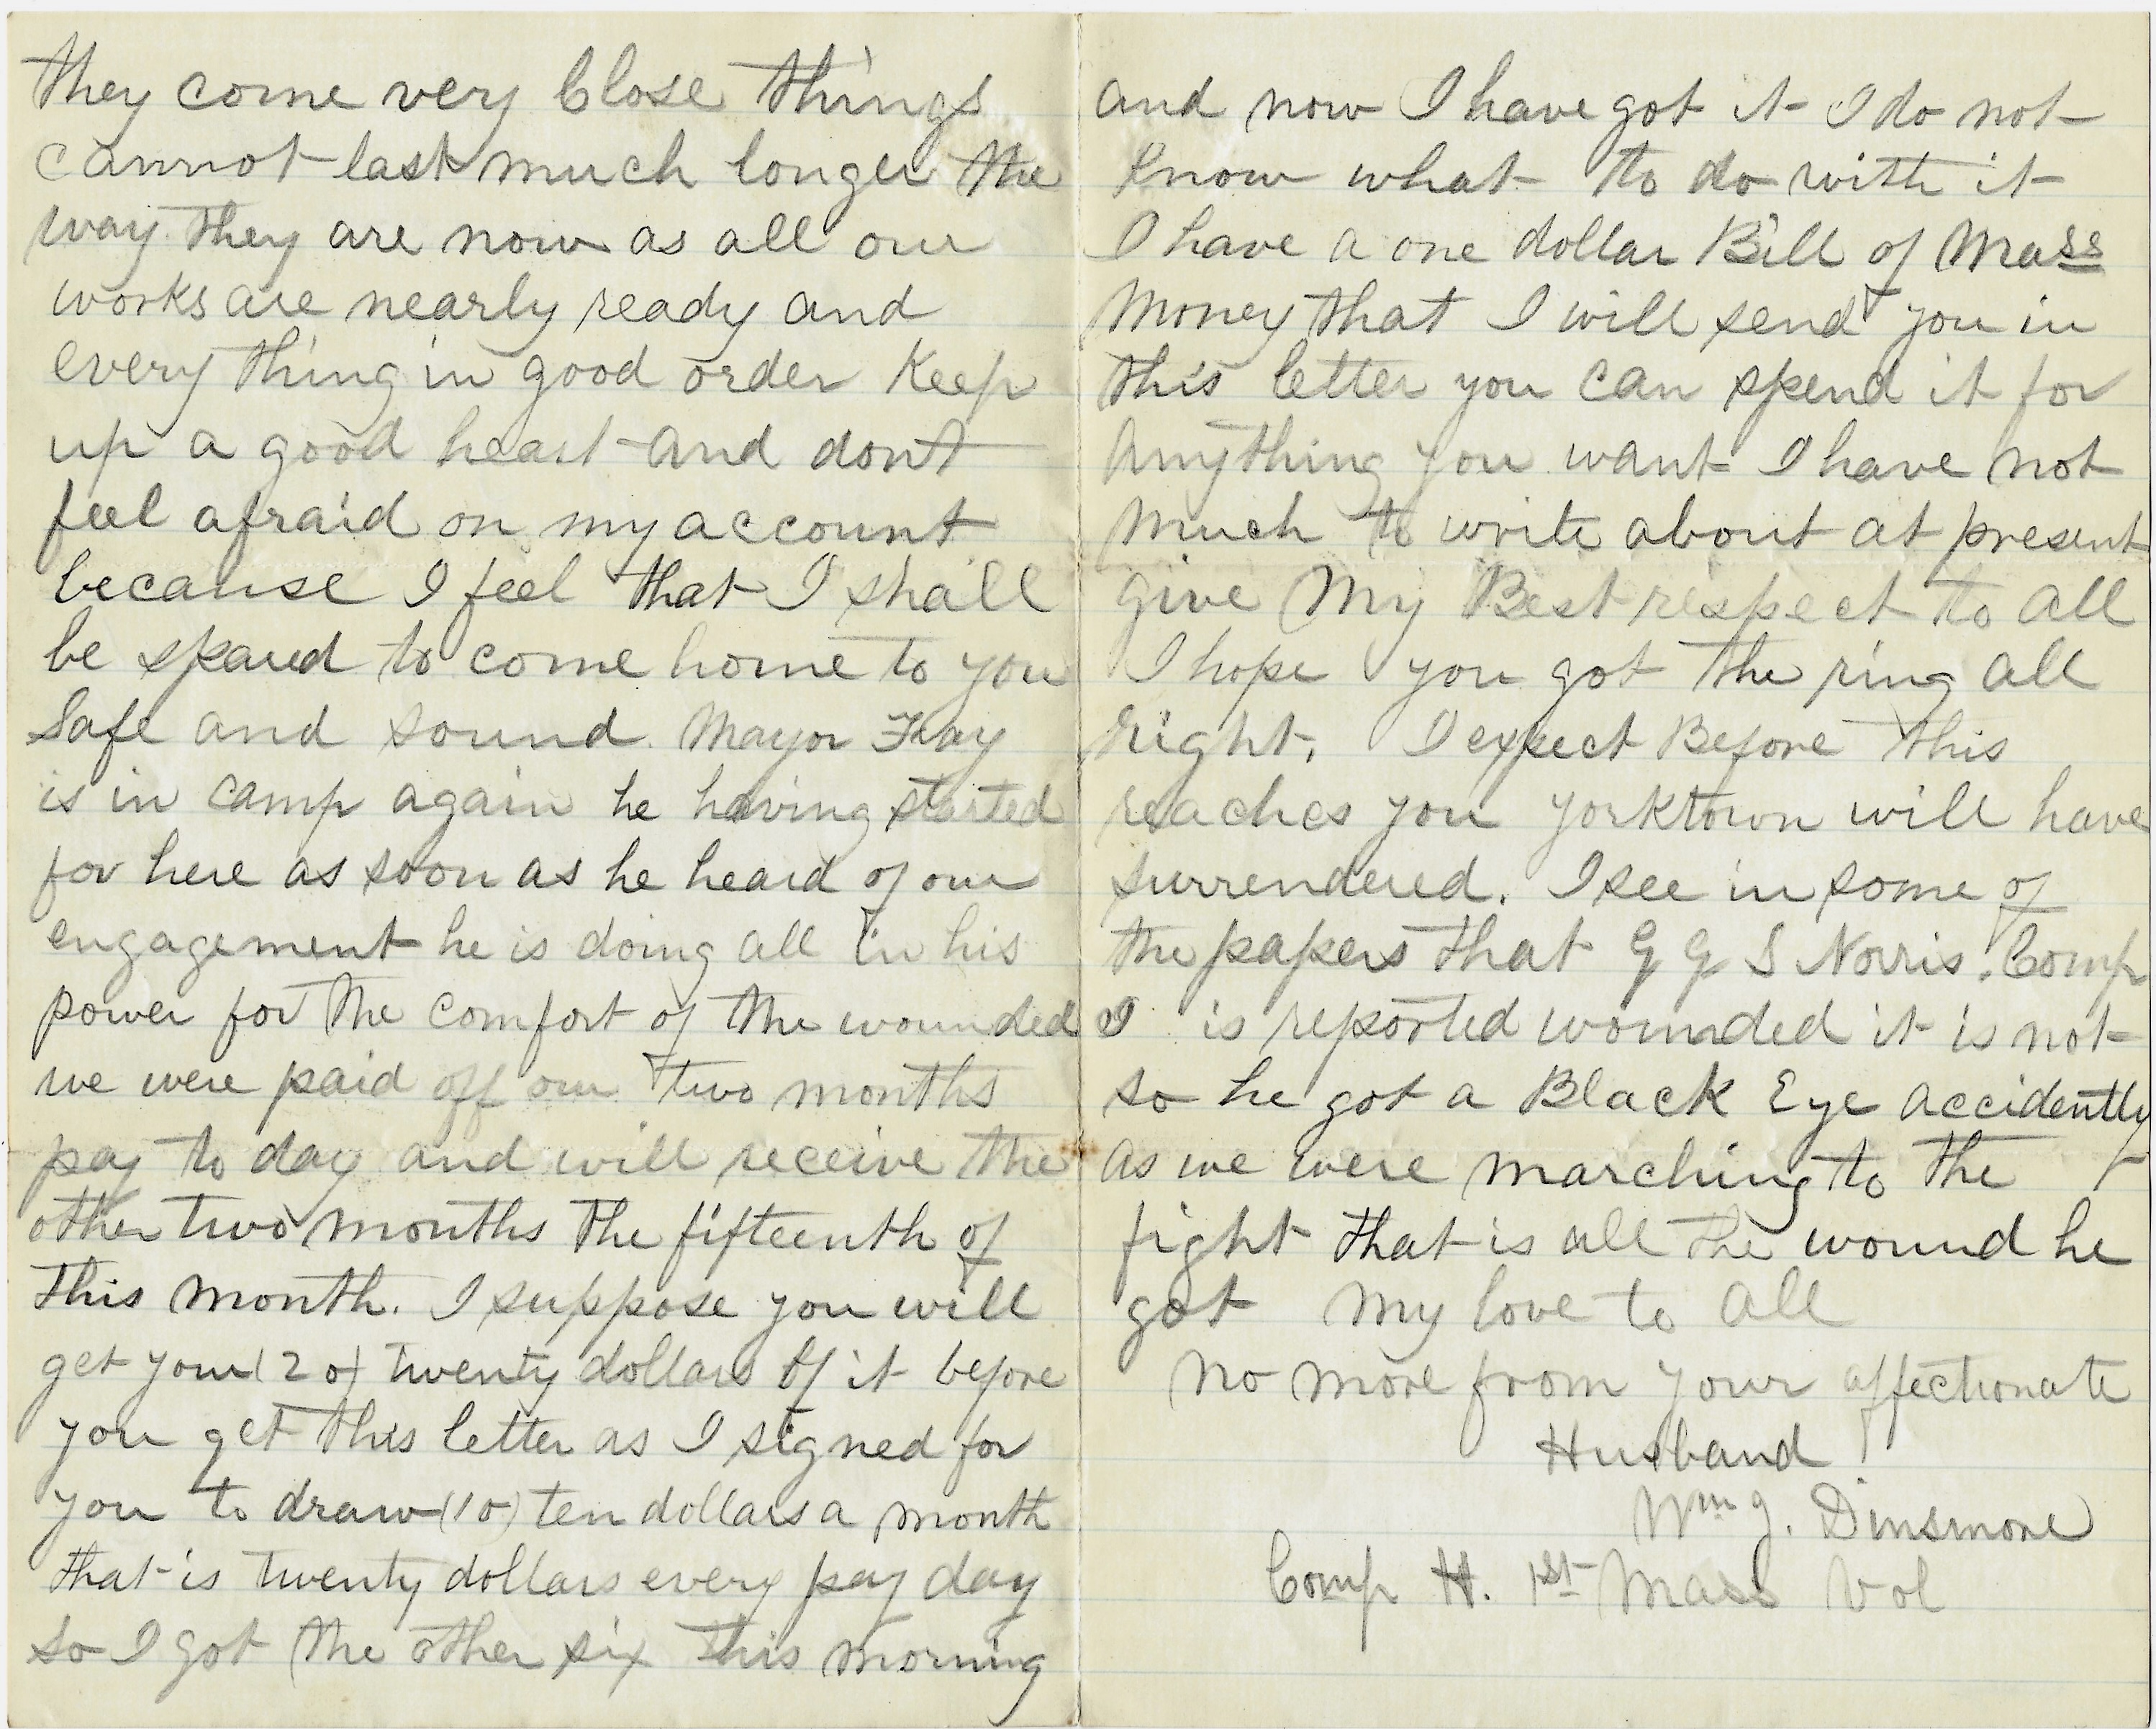 they come very Close things
cannot last much longer the
way they are now as all our
works are nearly ready and
every thing in good order Keep
up a good heart and dont
feel afraid on my account
because I feel that I shall
be spared to come home to you
Safe and sound. Mayor Fay
is in camp again he having started
for here as soon as he heard of our
engagement he is doing all in his
power for the comfort of the wounded
we were paid off our two months
pay to day and will receive the
other two months the fifteenth of
this month. I suppose you will
get your (20) twenty dollars of it before
you get this letter as I signed for
you to draw (10) ten dollars a month
that is twenty dollars every pay day
so I got the other six this morning
and now I have got it I do not
Know what to do with it
I have a one dollar Bill of Mass
Money that I will send you in
this letter you can spend it for
anything you want I have not
much to write about at present
give My Best respect to all
I hope you got the ring all
right. I expect Before this
reaches you yorktown will have
surrendered. I see in some of
the papers that G G S Norris. Comp
I is reported wounded it is not
so he got a Black Eye accidently
as we were marching to the
fight that is all the wound he
got My love to all
No more from your affectionate
Husband
Wm J. Dinsmore
Comp H. 1st Mass Vol